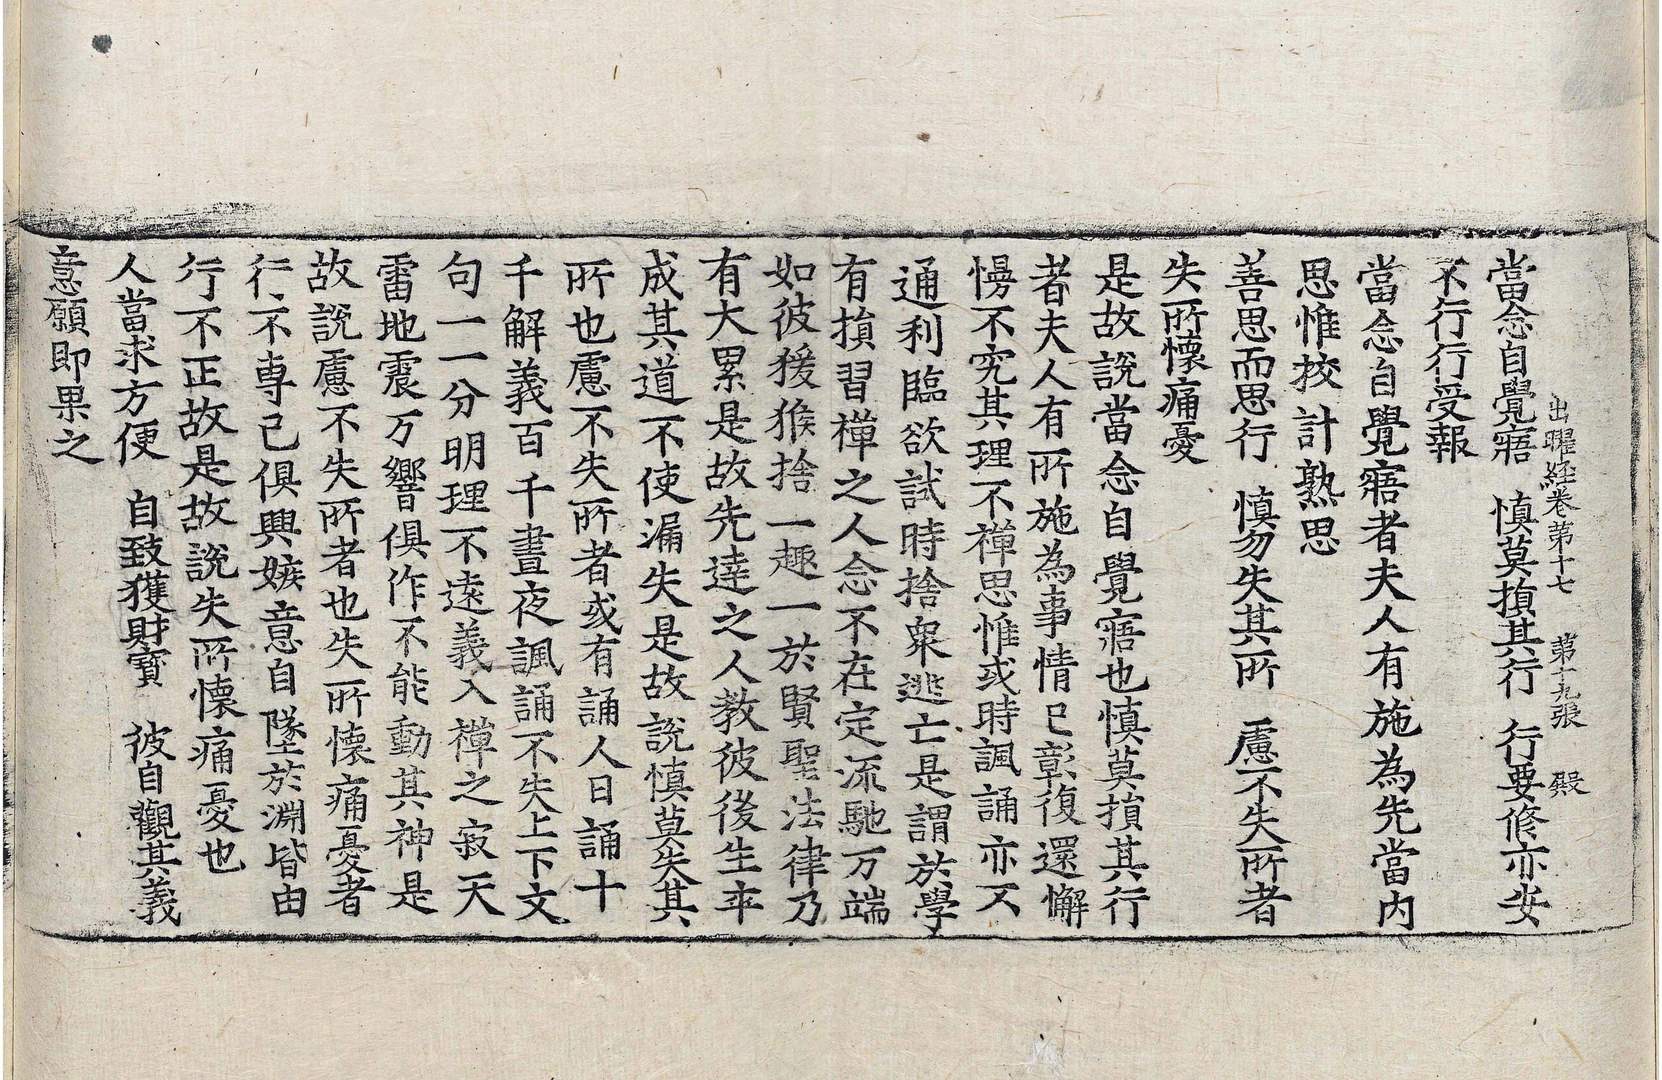 出曜經卷第十七　第十九張　殿
當念自覺寤　慎莫損其行　行要修亦安
不行行受報
當念自覺寤者夫人有施為先當內
思惟挍計熟思
善思而思行　慎勿失其所　慮不失所者
失所懷痛憂
是故說當念自覺寤也慎莫損其行
者夫人有所施為事情已彰復還懈
慢不究其理不禪思惟或時諷誦亦不
通利臨欲試時捨衆逃亡是謂於學
有損習禪之人念不在定流馳万端
如彼猨猴捨一趣一於賢聖法律乃
有大累是故先達之人教彼後生卒
成其道不使漏失是故說慎莫失其
所也慮不失所者或有誦人日誦十
千解義百千晝夜諷誦不失上下文
句一一分明理不遠義入禪之寂天
雷地震万響俱作不能動其神是
故說慮不失所者也失所懷痛憂者
行不專己俱興嫉意自墜於淵皆由
行不正故是故說失所懷痛憂也
人當求方便　自致獲財寶　彼自觀其義
意願即果之